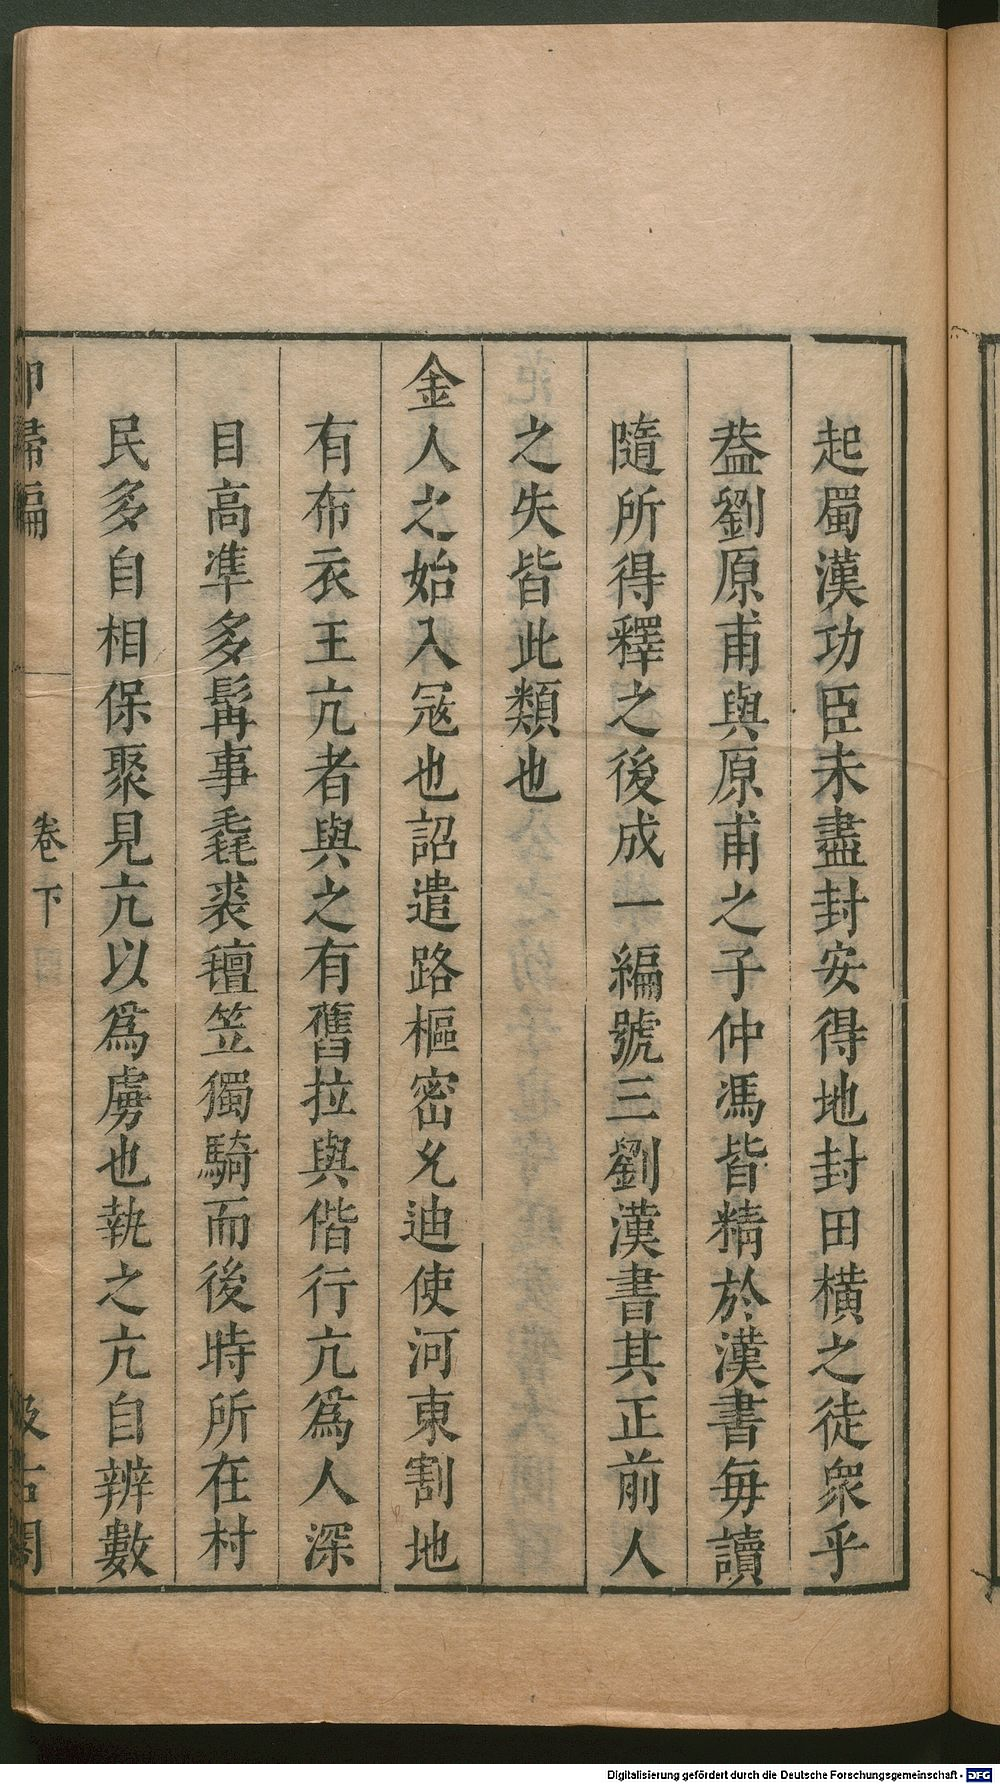 起蜀漢功臣未盡封安得地封田橫之徒衆乎
葢劉原甫與原甫之子仲馮皆精於漢書每讀
隨所得釋之後成一編號三劉漢書其正前人
之失皆此類也
金人之始入冦也詔遣路樞密允迪使河東割地
有布衣王亢者與之有舊拉與偕行亢爲人深
目高準多髯事毳裘氊笠獨騎而後時所在村
民多自相保聚見亢以爲虜也執之亢自辨數
卻掃編
卷下
汲古閣
Digitalisierung gefördert durch die Deutsche Forschungsgemeinschaft - DFG